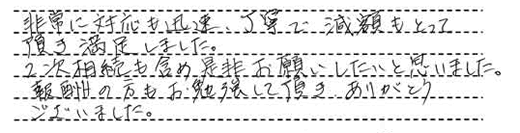 非常に対応も迅速、丁寧で減額もとって
頂き満足しました。
2次相続も含め是非お願いしたいと思いました。
報酬の方もお勉強して頂き、ありがとう
ございました。